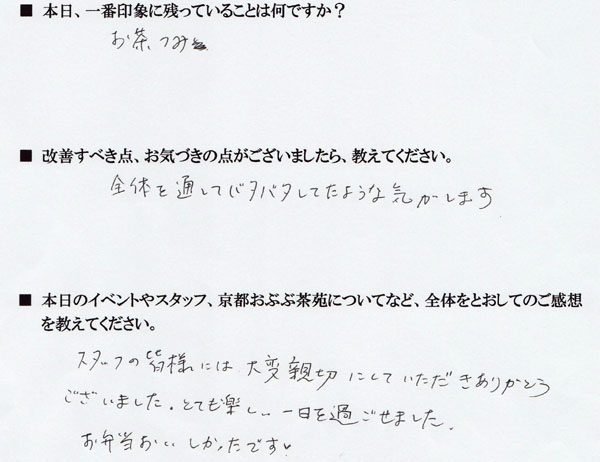 ■ 本日、一番印象に残っていることは何ですか？
お茶つみ
■ 改善すべき点、お気づきの点がございましたら、教えてください。
全体を通してバタバタしてたような気がします
■ 本日のイベントやスタッフ、京都おぶぶ茶苑についてなど、全体をとおしてのご感想
を教えてください。
スタッフの皆様には大変親切にしていただきありがとう
ございました。とても楽しい一日を過ごせました。
お弁当おいしかったです♥